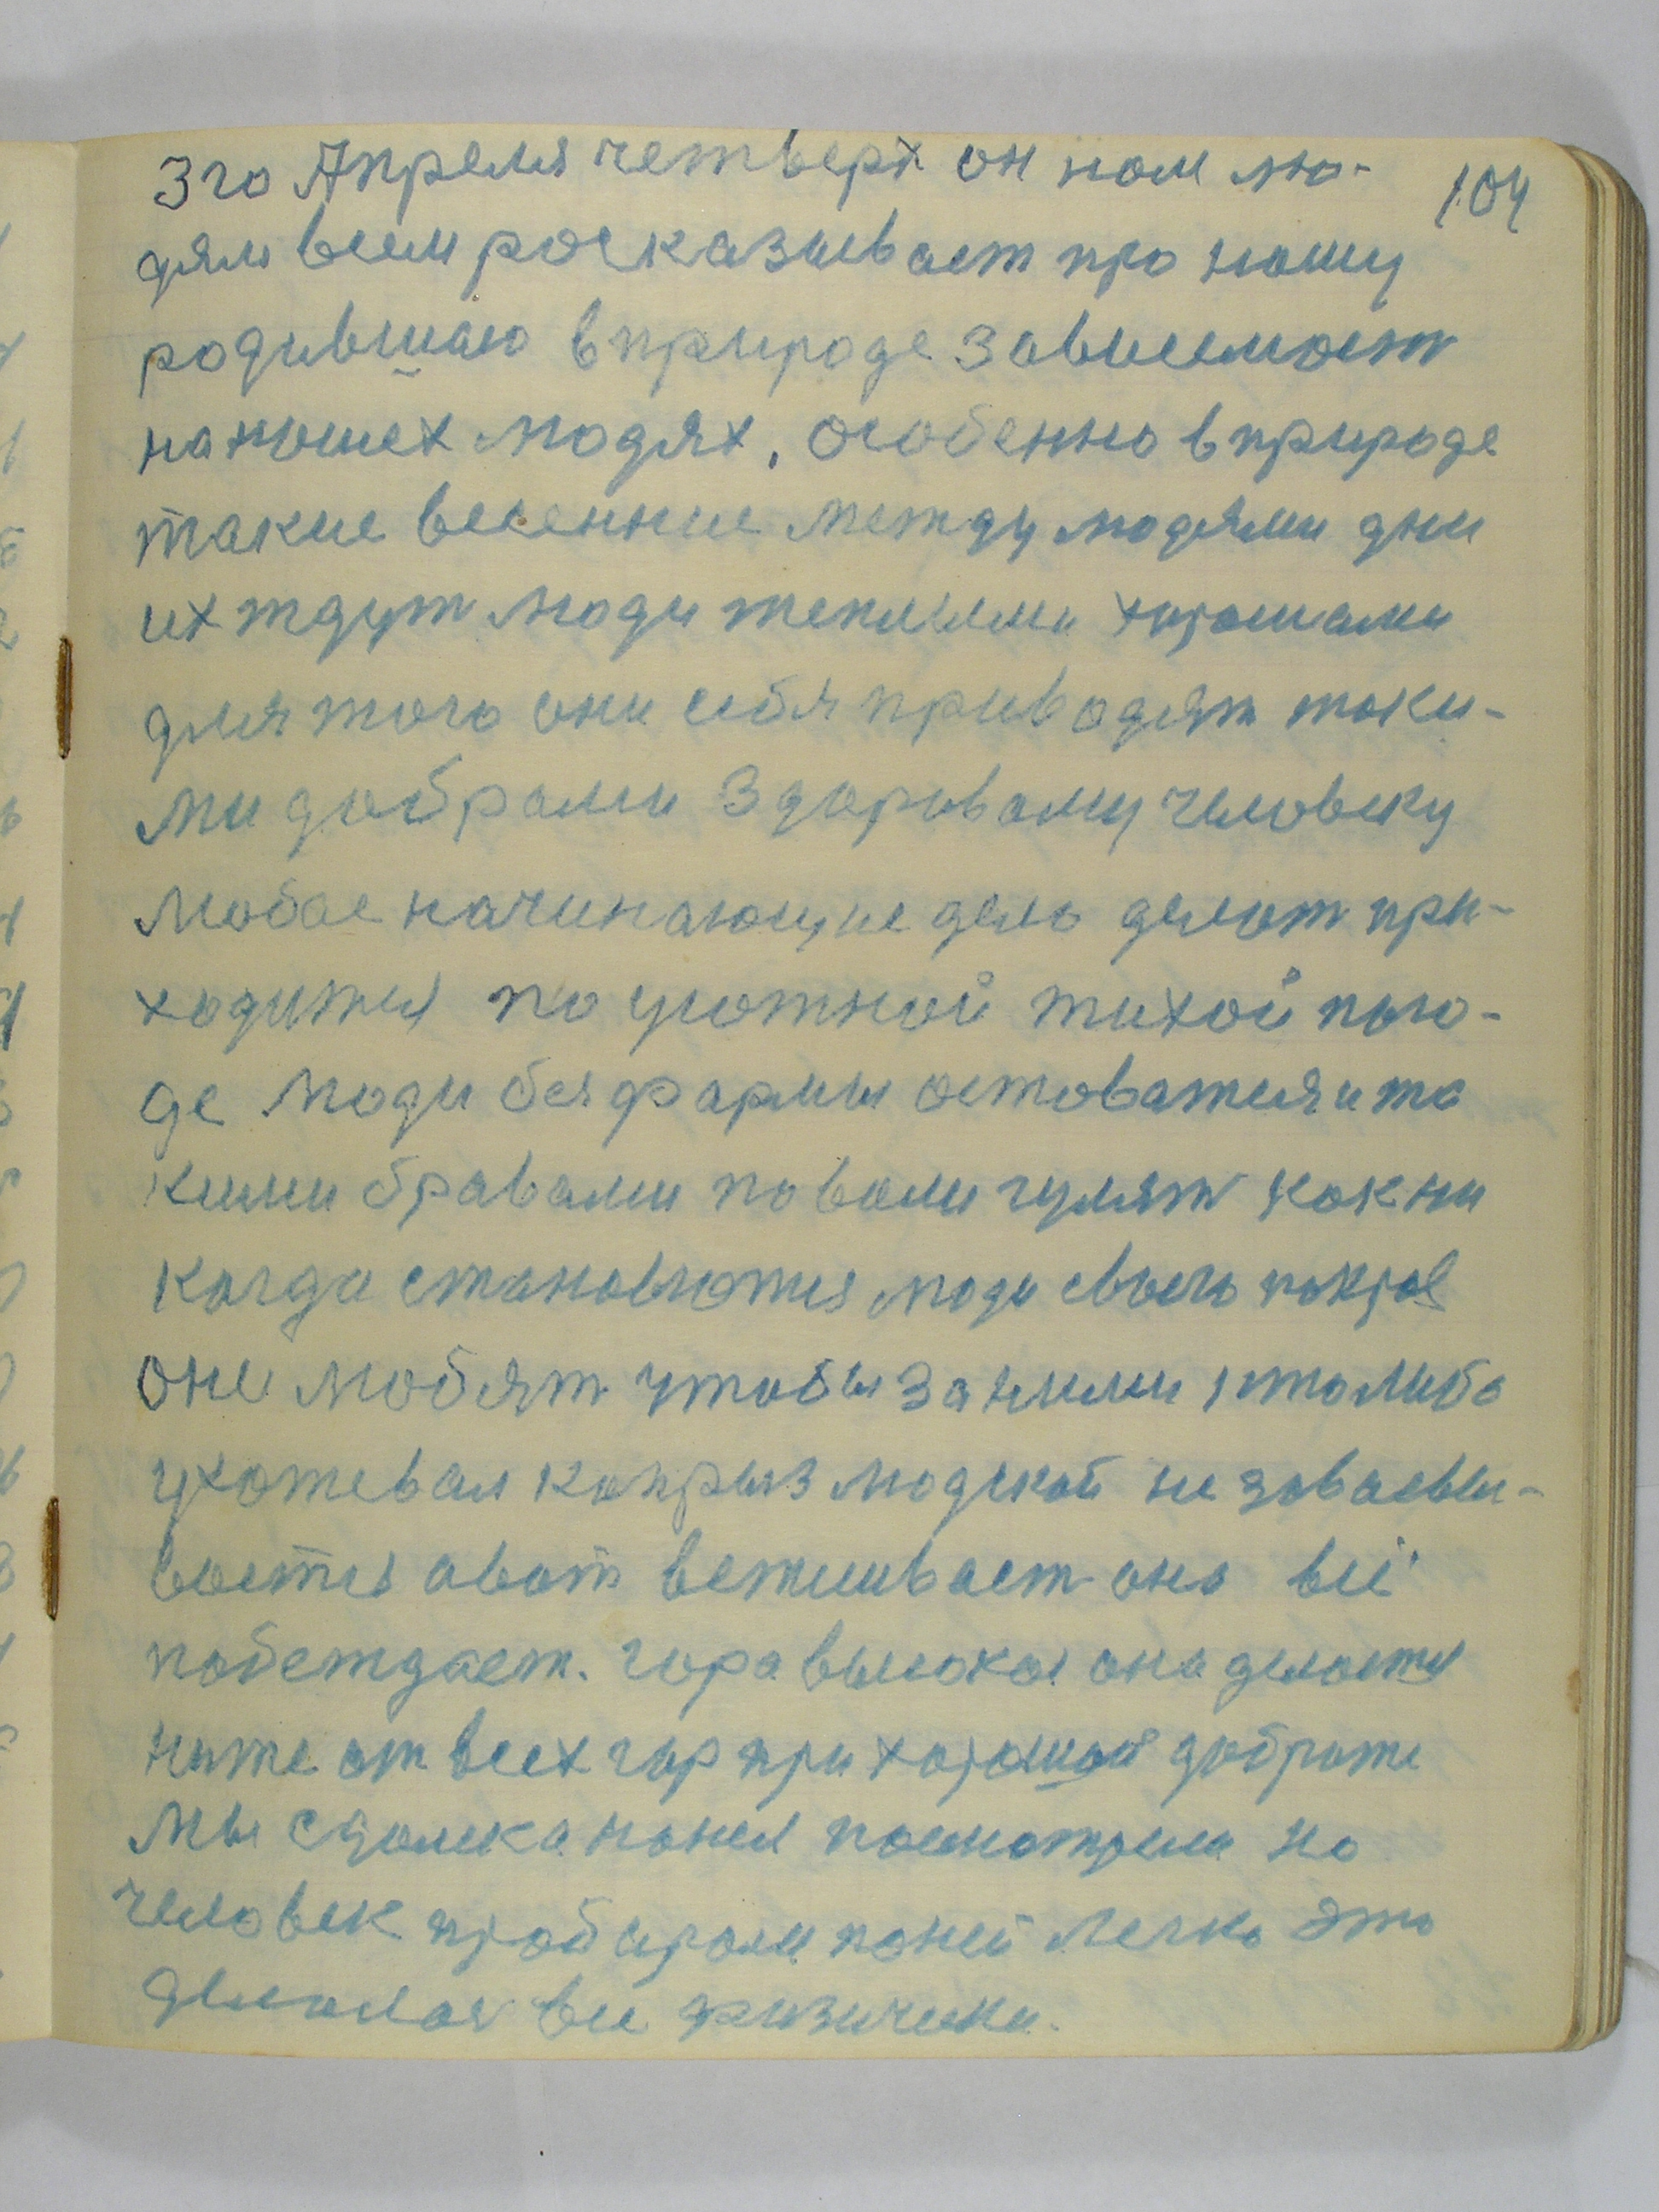 3го Апреля четверх он нам лю-
104
дям всем росказывает про нашу
родившаю в природе зависемост
на нашех людях, особенно в природе
такие весенние между людями дни
их ждут люди теплыми хорошами
для того они себя приводят таки-
ми добрами Здоровому человеку
любое начинающие дело делат при-
ходится по уютной тихой пого-
де люди без формы астоватся и та
кими бравами по воли гулят как ни
когда становлются люди своего
оне любят чтобы за ними кто либо
ухожевал копрыз людской не заваевы-
вается а вот вежливает она всё
побеждает. гора высокая она делается
ниже от всех гор при хорошой доброте
мы сдалека на нея посмотрели но
человек пробирали по ней легко это
делалося все физически.